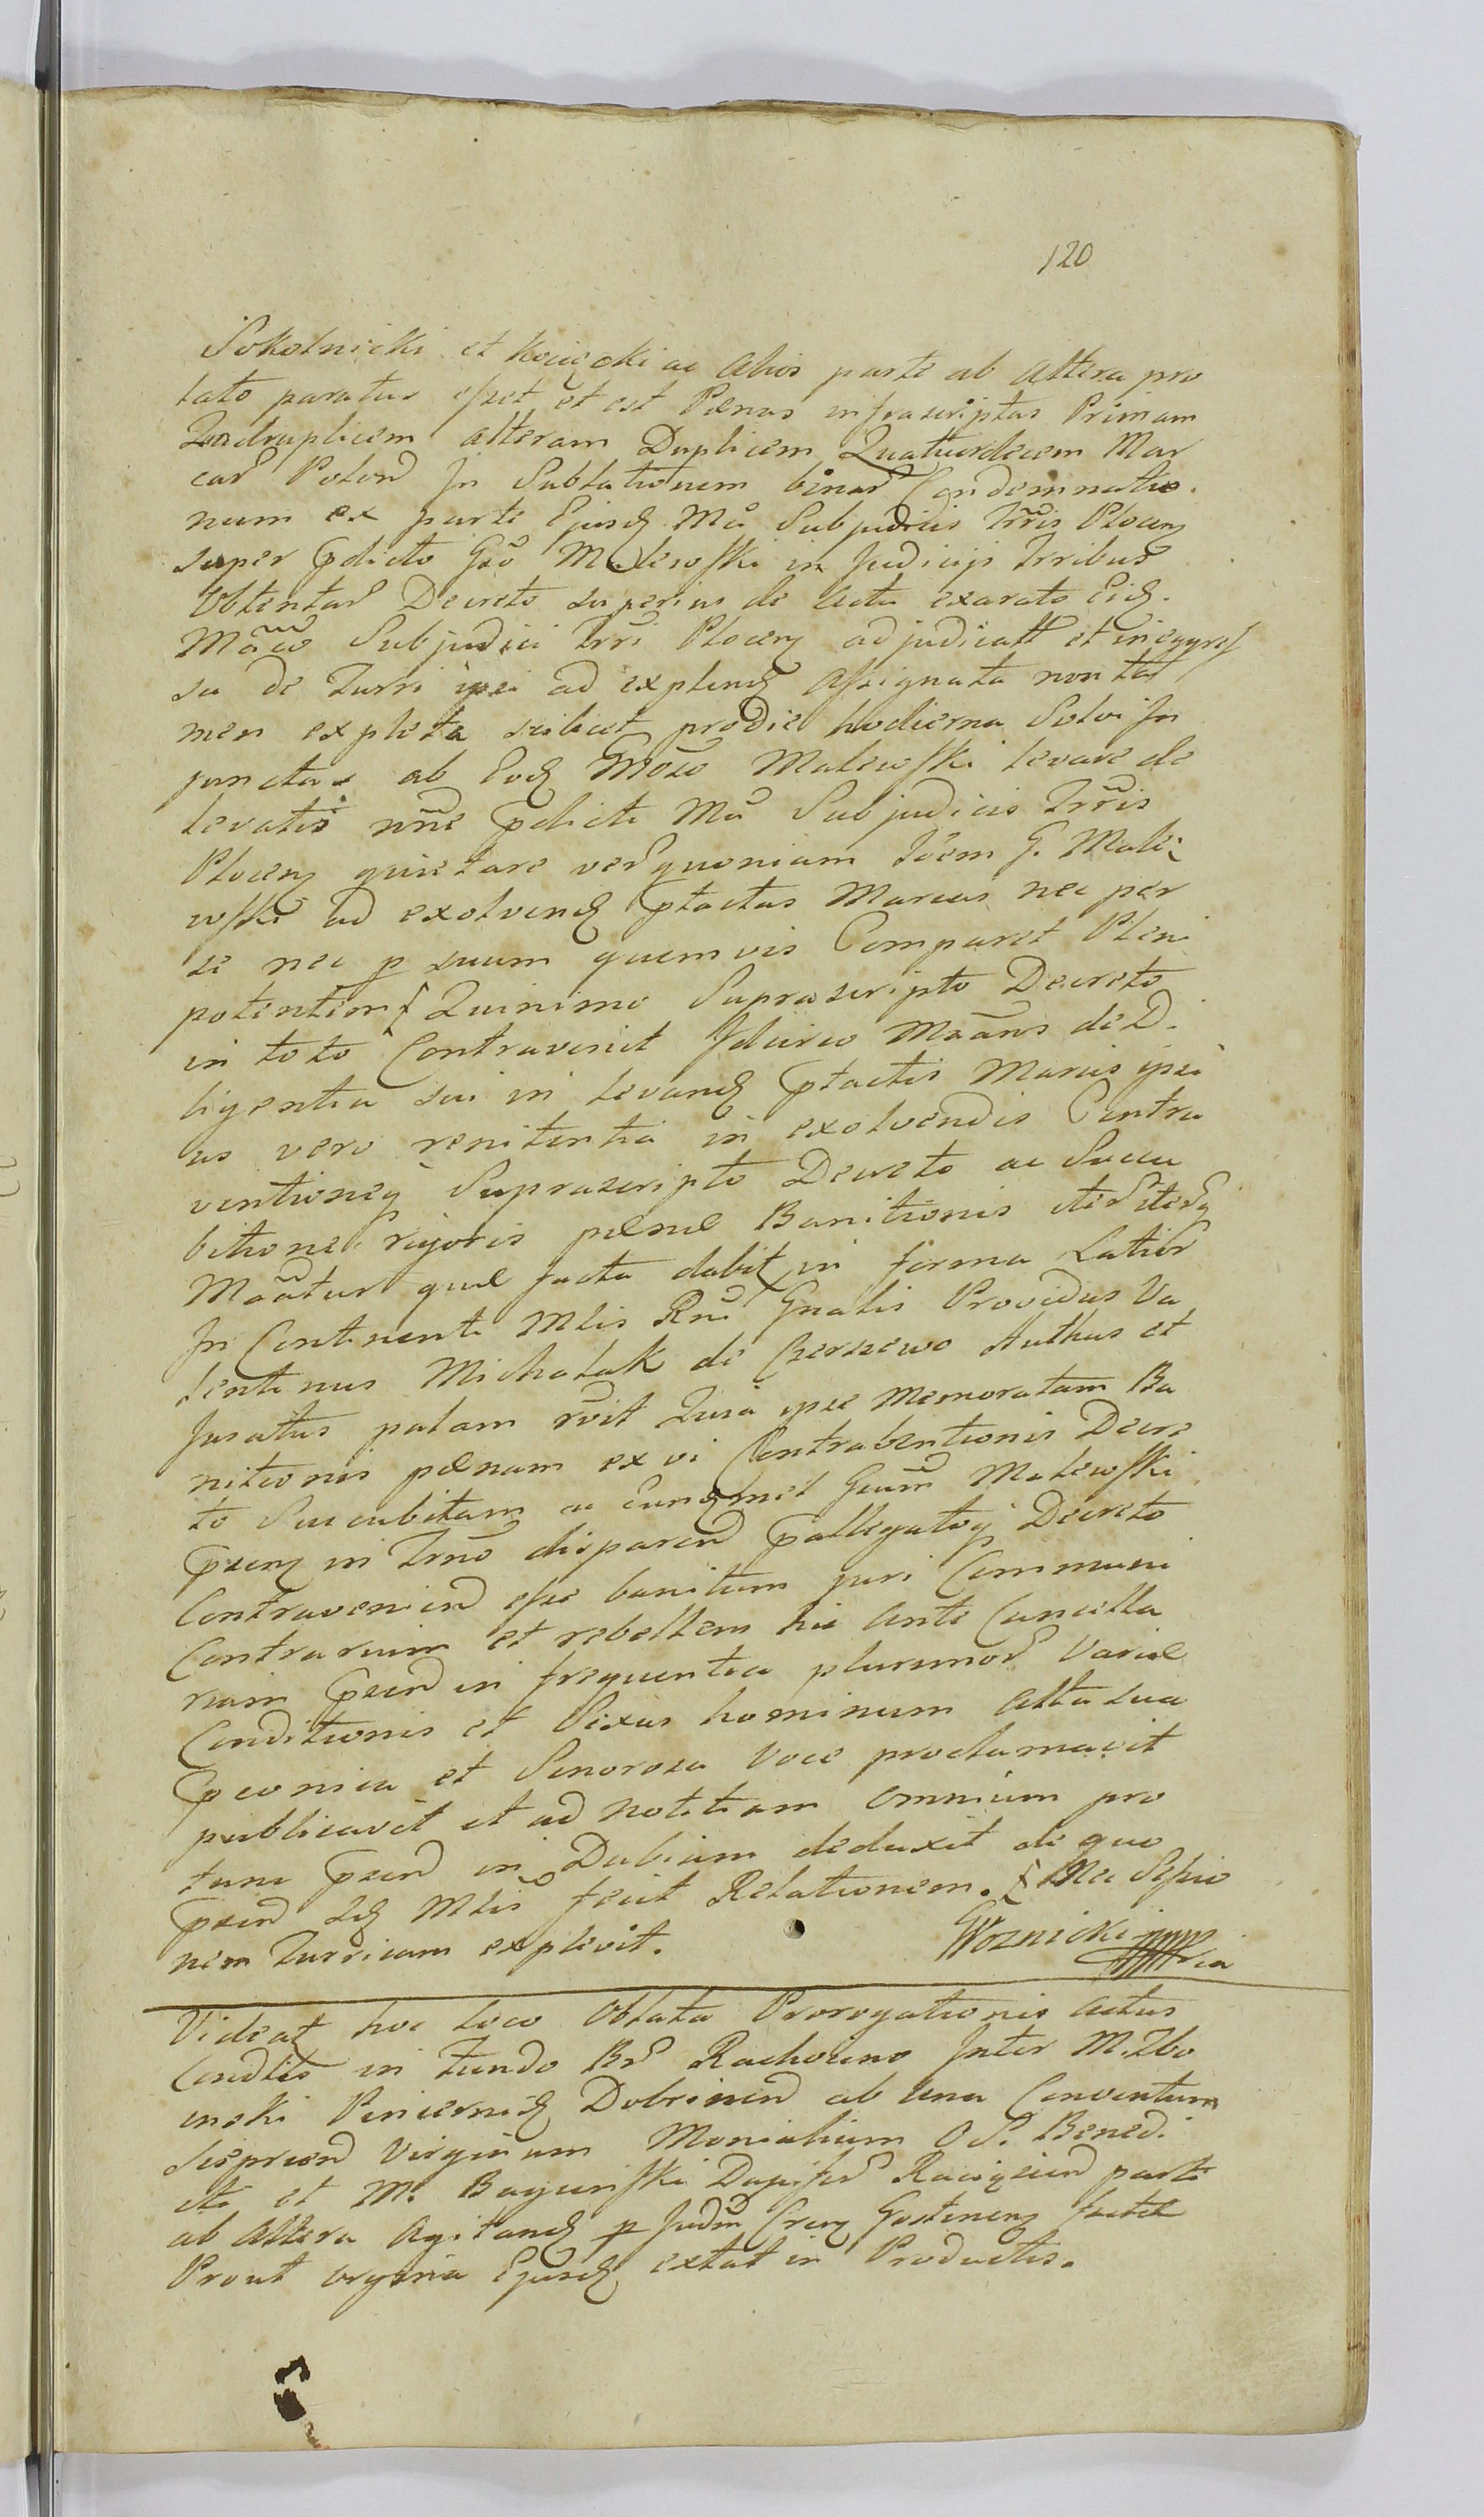 120
Sokolnicki et Kocięcki ac Alios parte ab Altera pro
lato paratus esset et est Pænas infrascriptas Primam
Quadruplicem alteram Duplicem Quatuordecem Mar
car Polon In Sublationem binar Condemnatio
num ex parte Ejusq Mci Subjudicis Trris Plocen
super pdicto Gso Malewski in Judicijs Trribus
Obtentar Decreto superius de Actu exarato Eidq.
Mfico Subjudici Trri Plocen adjudicatt et in egres
su de Turri ipsi ad explend Assignata non ta
men expleta scilicet pro die hodierna Solvi In
junctas ab Eodq Gnoso Malewski levare de
levatis nne pdicti Mci Subjudicis Trris
Plocen quietare ver quoniam Idem G. Male
wski ad exolvend ptactas Marcas nec per
se nec p suum quemvis Comparet Pleni
potentem Quinimo Suprascripto Decreto
in toto Contravenit Idcirco Maans de Di
ligentia sui in levand ptactis Marcis ipsi
us vero renitentia in exolvendis Contra
ventioneq Suprascripto Decreto ac Succu
bitione rigoris pænæ Banitionis iter iterq
Maatur quæ facta dabit in forma Latior
In Continenti Mlis Rni Gnalis Providus Va
lentinus Michalak de Czerzewo Authus et
Juratus palam rvit Quia ipse Memoratam Ba
nitionis pænam ex vi Contrabentionis Decre
to Succubitam ac Eundqmet Gsum Malewski
psen in Trno disparen pallegatoq Decreto
Contravenien esse banitum juri Communi
Contrarium et rebellem hic Ante Cancella
riam psen in frequentia plurimor Variæ
Conditionis et Sexus hominum Alta sua
pconica et Sonorosa Voce proclamavit
publicavit et ad notitiam Omnium pro
tunc psen in Dubium deduxit de quo
psen Idq Mlis fecit Relationem. Nec Sessio
nem Turricam explevit.
Woznicki
Videat hoc loco Oblata Prorogationis Actus
Conditis in fundo Br Rachocino Inter M. Zbo
inski Pincernidq Dobrinen ab una Conventum
Sieprcen Virginum Monialium O S. Bened.
cti et M. Bagienski Dapifer Raciązien parte
ab Altera Agitand p Judm Cren Gostinen factæ
Prout orginia Ejusdq extat in Productis.